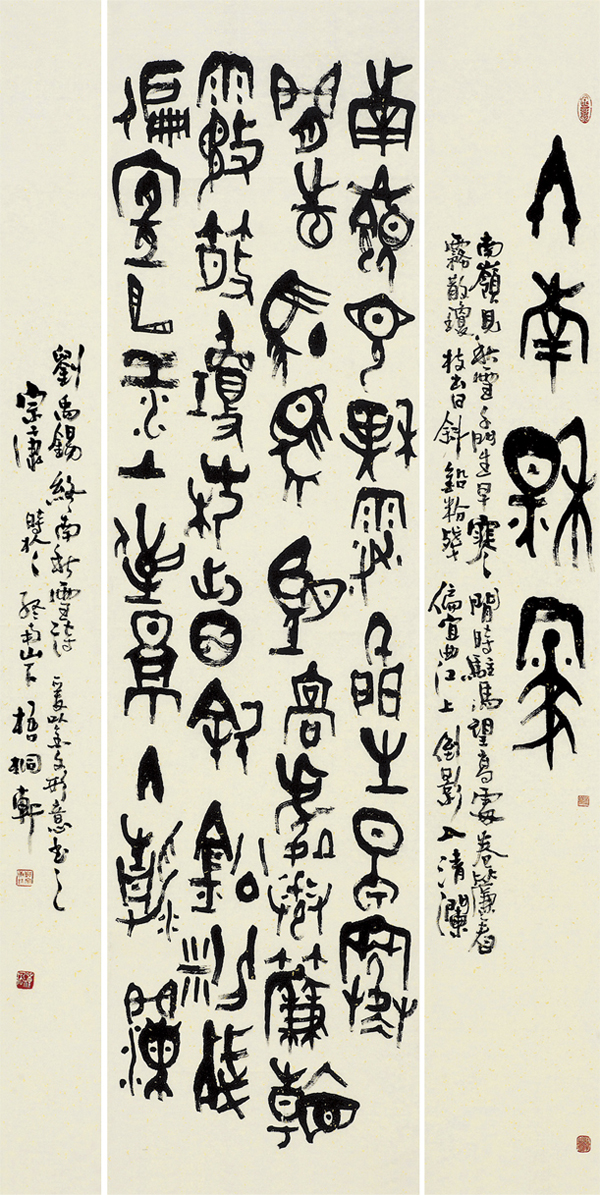 終南秋雪
南嶺見秋雪千門生早寒閒時駐馬望高處卷簾看
霧散瓊枝出日斜鉛粉殘偏宜曲江上倒影入清瀾
南嶺見秋雪千門生早寒
閒時駐馬望高處卷簾看
霧散瓊枝出日斜鉛粉殘
偏宜曲江上倒影入清瀾
劉禹錫終南秋雪詩爰以金文形意書之
宗時於終南山下梧桐軒